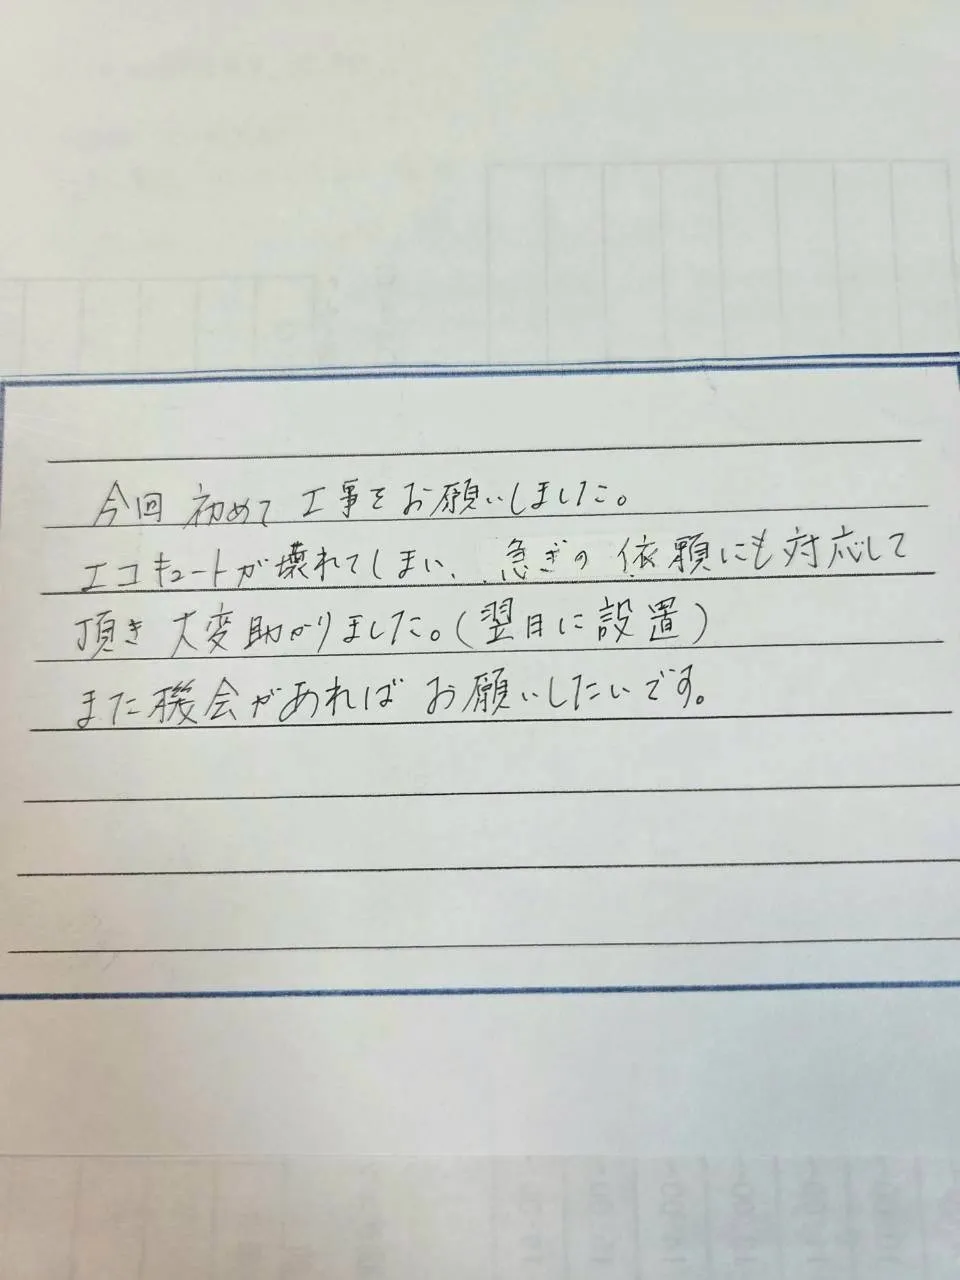 今回 初めて 工事をお願いしました。
エコキュートが壊れてしまい、急ぎの 依頼にも対応して
頂き 大変助かりました。(翌日に設置)
また機会があれば お願いしたいです。